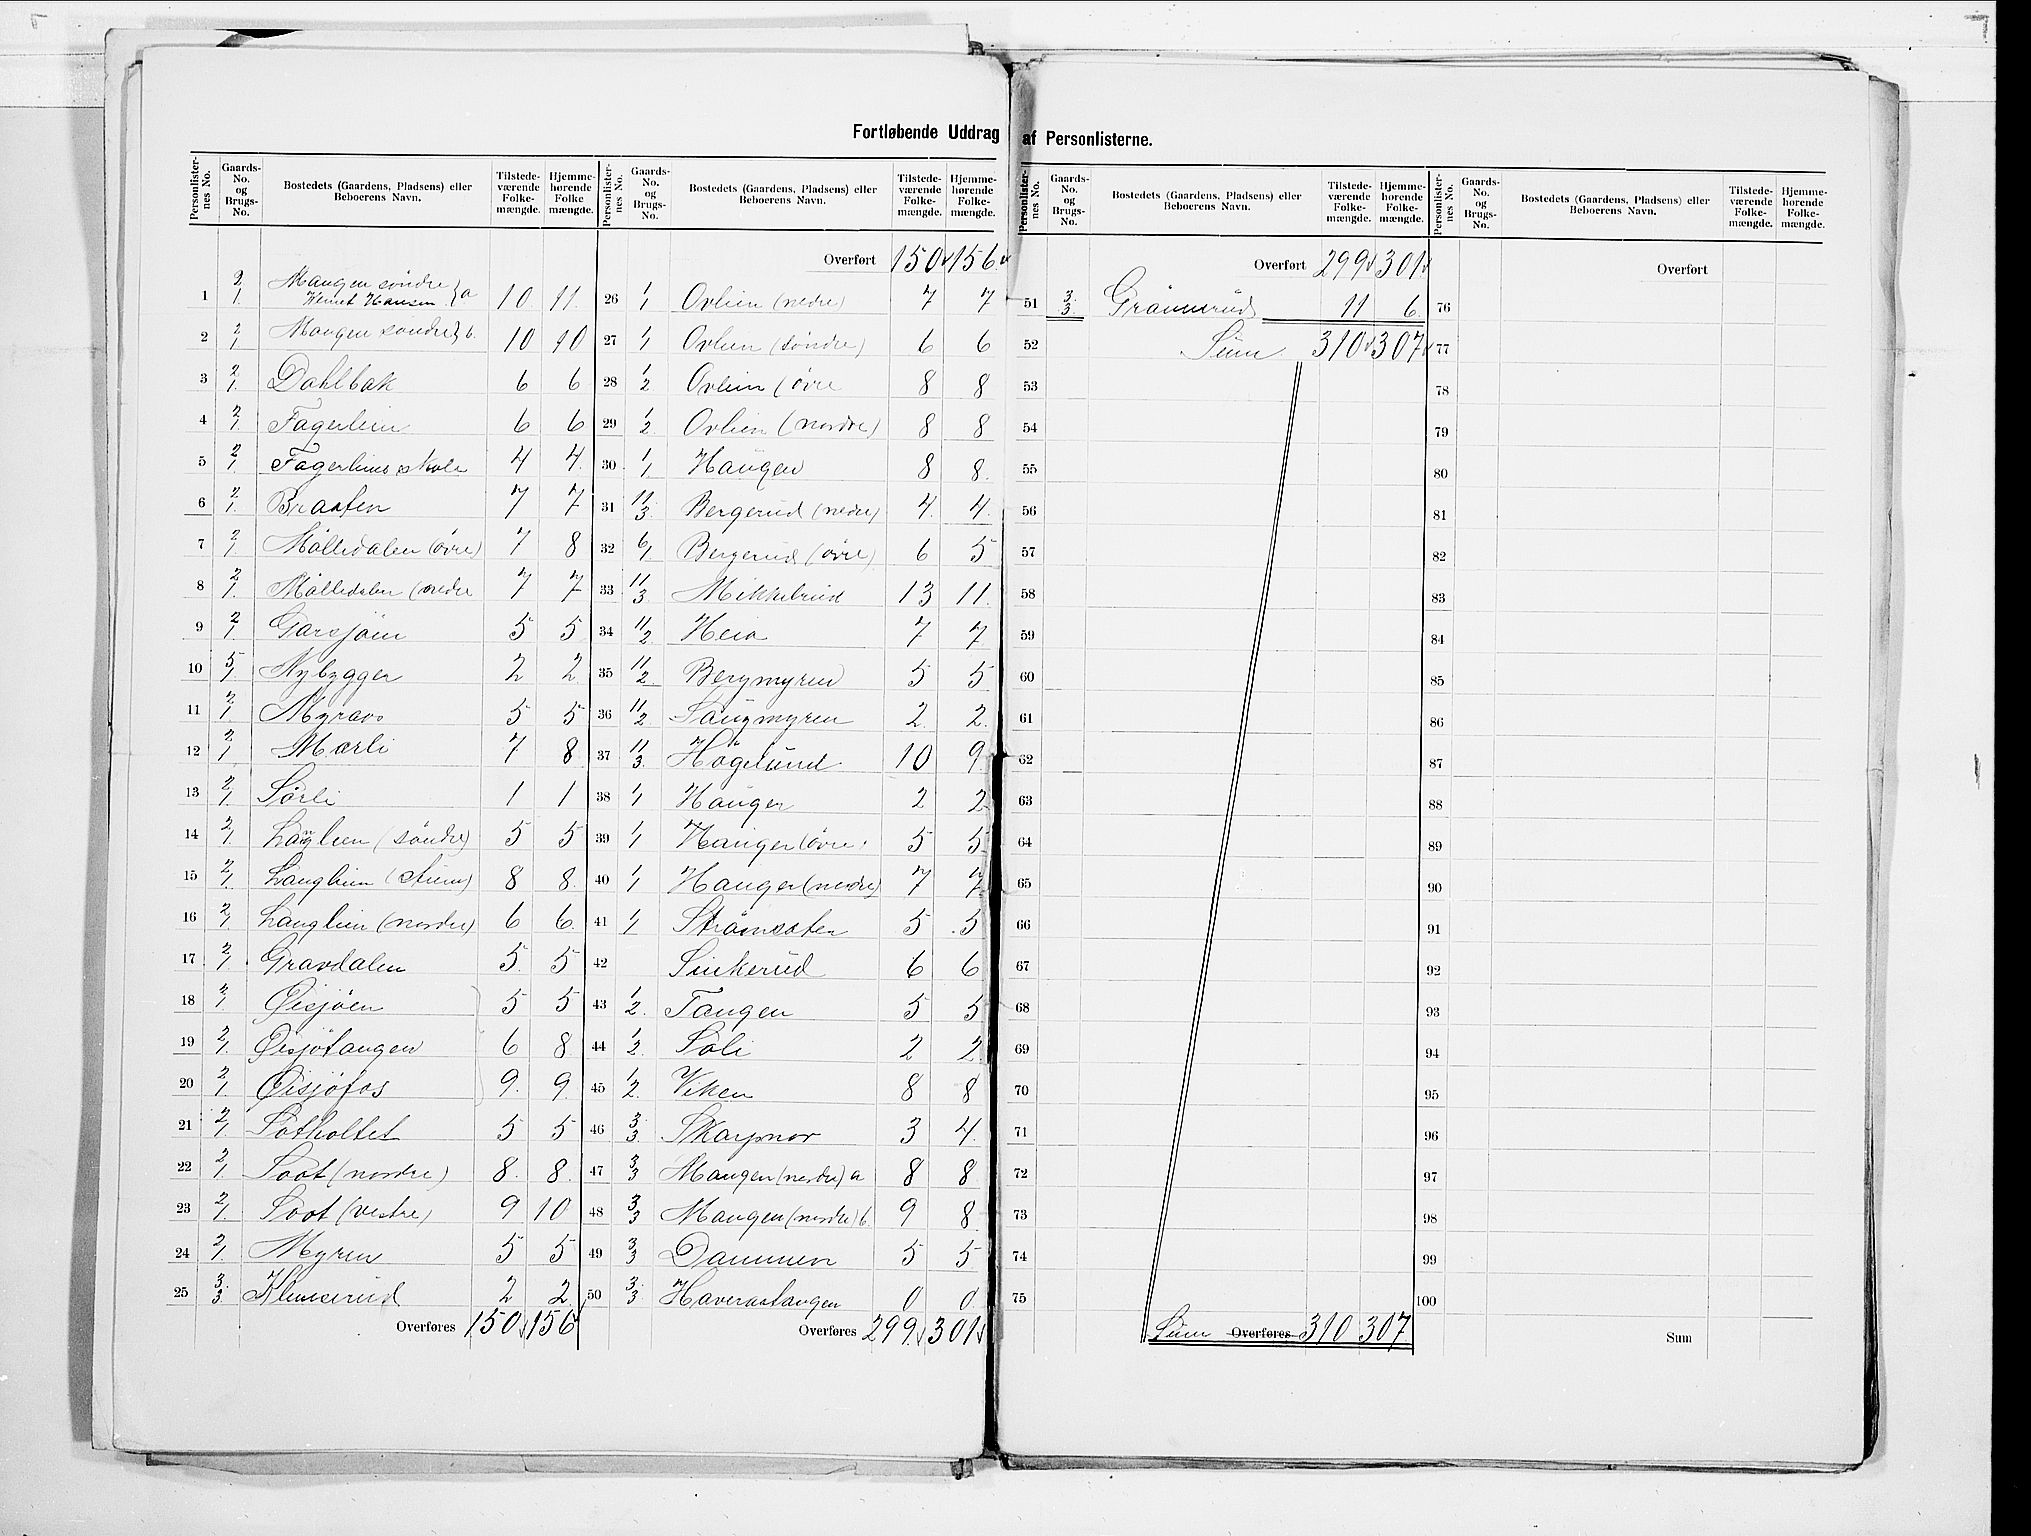 Fortløbende Uddrag af Personlisterne.
Personlisternes No. | Gaards-No. og Brugs-No. | Bostedets (Gaardens, Pladsens) eller Beboerens Navn. | Tilstedeværende Folkemængde. | Hjemmehørende Folkemængde.
1 | 2/1 | Mangen søndre Hansen } a | 10 | 11
2 | 2/1 | Mangen søndre } b. | 10 | 10
3 | 2/1 | Dahlbak | 6 | 6
4 | 2/1 | Fagerlien | 6 | 6
5 | 2/1 | Fagerliens skole | 4 | 4
6 | 2/1 | Braaten | 7 | 7
7 | 2/1 | Mölledalen (övre) | 7 | 8
8 | 2/1 | Mölledalen (nedre | 7 | 7
9 | 2/1 | Garsjöen | 5 | 5
10 | 5/1 | Nybygger | 2 | 2
11 | 2/1 | 5 | 5
12 | 2/1 | Mærli | 7 | 8
13 | 2/1 | Sörli | 1 | 1
14 | 2/1 | Langlien (söndre) | 5 | 5
15 | 2/1 | Langlien | 8 | 8
16 | 2/1 | Langlien (nordre) | 6 | 6
17 | 2/1 | Gravdalen | 5 | 5
18 | 2/1 | Øisjöen | 5 | 5
19 | 2/1 | Øisjötangen | 6 | 8
20 | 2/1 | Øisjöfos | 9 | 9
21 | 2/1 | Sotholtet | 5 | 5
22 | 2/1 | Soot (nordre) | 8 | 8
23 | 2/1 | Soot (vestre) | 9 | 10
24 | 2/1 | Myren | 5 | 5
25 | 3/3 | Klemserud | 2 | 2
Overføres 150 156
Personlisternes No. | Gaards-No. og Brugs-No. | Bostedets (Gaardens, Pladsens) eller Beboerens Navn. | Tilstedeværende Folkemængde. | Hjemmehørende Folkemængde.
Overført 150 156
26 | 1/1 | Ovlien (nedre) | 7 | 7
27 | 1/1 | Ovlien (söndre) | 6 | 6
28 | 1/2 | Ovlien (övre | 8 | 8
29 | 1/2 | Ovlien (nordre) | 8 | 8
30 | 1/1 | Haugen | 8 | 8
31 | 11/3 | Bergerud (nedre) | 4 | 4
32 | 6/1 | Bergerud (övre) | 6 | 5
33 | 11/3 | Mikkelrud | 13 | 11
34 | 11/2 | Heia | 7 | 7
35 | 11/2 | Bergmyren | 5 | 5
36 | 11/2 | Saugmyren | 2 | 2
37 | 11/3 | Högelund | 10 | 9
38 | 1/1 | Hauger | 2 | 2
39 | 1/1 | Hauger (övre) | 5 | 5
40 | 1/1 | Hauger (nedre) | 7 | 7
41 | 1/1 | Strömsæter | 5 | 5
42 | Sinkerud | 6 | 6
43 | 1/2 | Tangen | 5 | 5
44 | 1/2 | Soli | 2 | 2
45 | 1/2 | Viken | 8 | 8
46 | 3/3 | Skarpnor | 3 | 4
47 | 3/3 | Mangen (nordre) a | 8 | 8
48 | 3/3 | Mangen (nordre) b. | 9 | 8
49 | 3/3 | Dammen | 5 | 5
50 | 3/3 | Haverastangen | 0 | 0
Overføres 299 301
Personlisternes No. | Gaards-No. og Brugs-No. | Bostedets (Gaardens, Pladsens) eller Beboerens Navn. | Tilstedeværende Folkemængde. | Hjemmehørende Folkemængde.
Overført 299 301
51 | 3/3 | Grönnerud | 11 | 6
52 | Sum | 310 | 307
53
54
55
56
57
58
59
60
61
62
63
64
65
66
67
68
69
70
71
72
73
74
75
Sum Overføres 310 307
Personlisternes No. | Gaards-No. og Brugs-No. | Bostedets (Gaardens, Pladsens) eller Beboerens Navn. | Tilstedeværende Folkemængde. | Hjemmehørende Folkemængde.
Overført
76
77
78
79
80
81
82
83
84
85
86
87
88
89
90
91
92
93
94
95
96
97
98
99
100
Sum